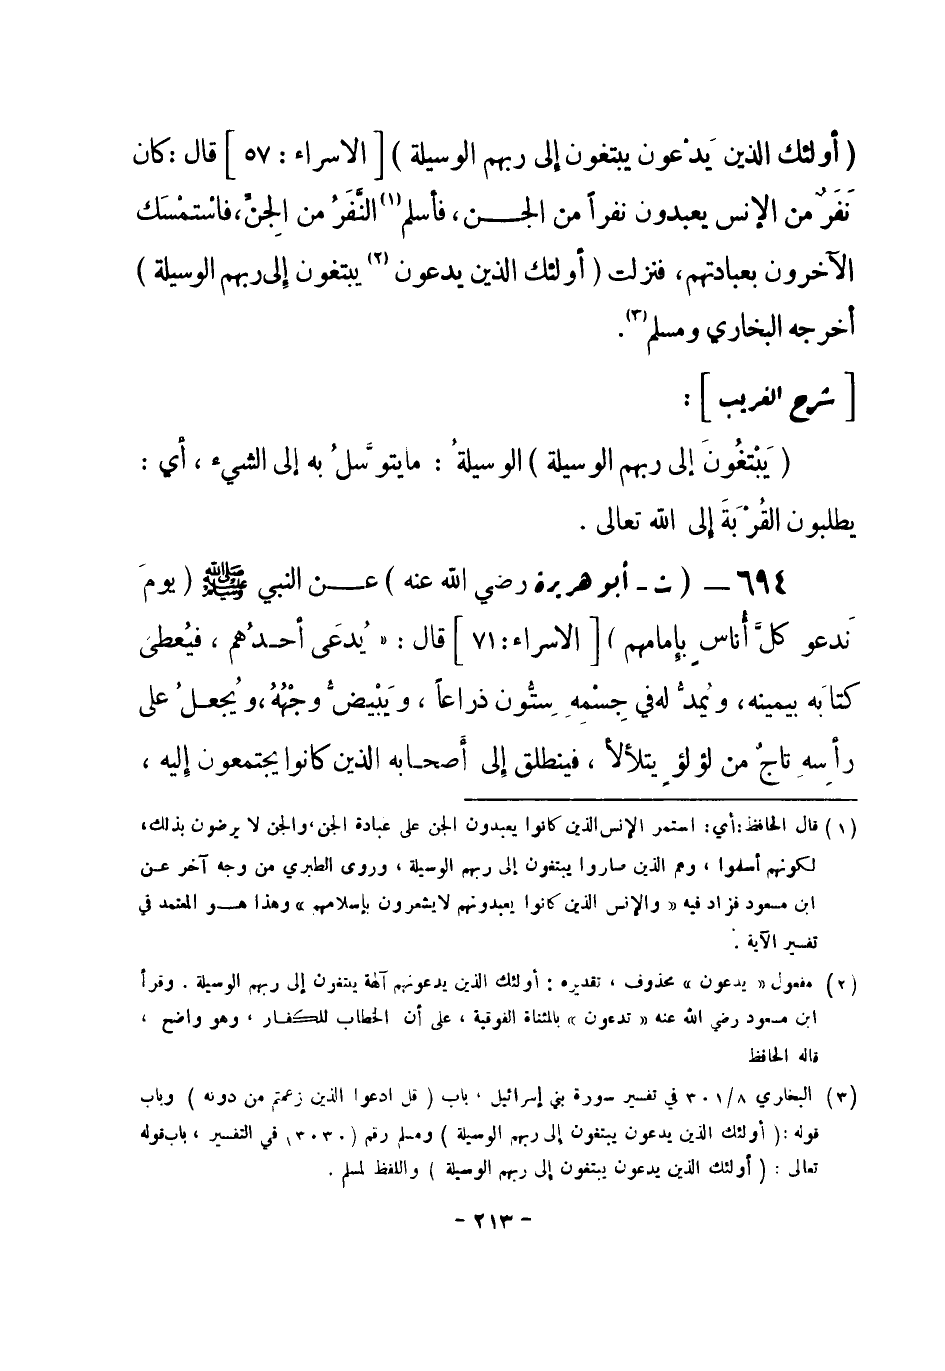 ( أولئك الذين يَدْعون يبتغون إلى ربهم الوسيلة ) [ الاسراء : ٥٧ ] قال : كان
نَفَرٌ من الإنس يعبدون نفراً من الجـــن ، فأسلم (١) النَّفَرُ من الجِنِّ ، فاسْتمْسَك
الآخرون بعبادتهم ، فنزلت ( أولئك الذين يدعون (٢) يبتغون إلى ربهم الوسيلة )
أخرجه البخاري ومسلم (٣) .
[ شرح الغريب ] :
( يَبْتغُونَ إلى ربهم الوسيلة ) الوسيلةُ : مايتوسَّلُ به إلى الشيء ، أي :
يطلبون القُرْبَةَ إلى الله تعالى .
٦٩٤ – ( ت - أبو هريرة رضي الله عنه ) عـــن النبي ﷺ ( يومَ
نَدعو كلَّ أُناسٍ بإمامهم ) [ الاسراء : ٧١ ] قال : « يُدعَى أحـدُهم ، فيُعطىَ
كتابَه بيمينه ، ويُمدُّ له في جِسْمهِ سِتُّون ذراعاً ، ويَبْيضُّ وجْهُهُ ، ويُجعـلُ على
رأسِهِ تاجٌ من لؤلؤٍ يتلألأ ، فينطلق إلى أصحـابه الذين كانوا يجتمعون إليه ،
(١) قال الحافظ : أي : استمر الإنس الذين كانوا يعبدون الجن على عبادة الجن ، والجن لا يرضون بذلك ،
لكونهم أسلموا ، وهم الذين صاروا يبتغون إلى ربهم الوسيلة ، وروى الطبري من وجه آخر عـن
ابن مسعود فزاد فيه « والإنس الذين كانوا يعبدونهم لايشعرون بإسلامهم » وهذا هـو المعتمد في
تفسير الآية .
(٢) مفعول « يدعون » محذوف ، تقديره : أولئك الذين يدعونهم آلهة يبتغون إلى ربهم الوسيلة . وقرأ
ابن مسعود رضي الله عنه « تدعون » بالمثناة الفوقية ، على أن الخطاب للكفار ، وهو واضح ،
قاله الحافظ
(٣) البخاري ٨/ ٣٠١ في تفسير سورة بني إسرائيل ، باب ( قل ادعوا الذين زعمتم من دونه ) وباب
قوله : ( أولئك الذين يدعون يبتغون إلى ربهم الوسيلة ) ومسلم رقم (٣٠٣٠) في التفسير ، باب قوله
تعالى : ( أولئك الذين يدعون يبتغون إلى ربهم الوسيلة ) واللفظ لمسلم .
- ٢١٣ -